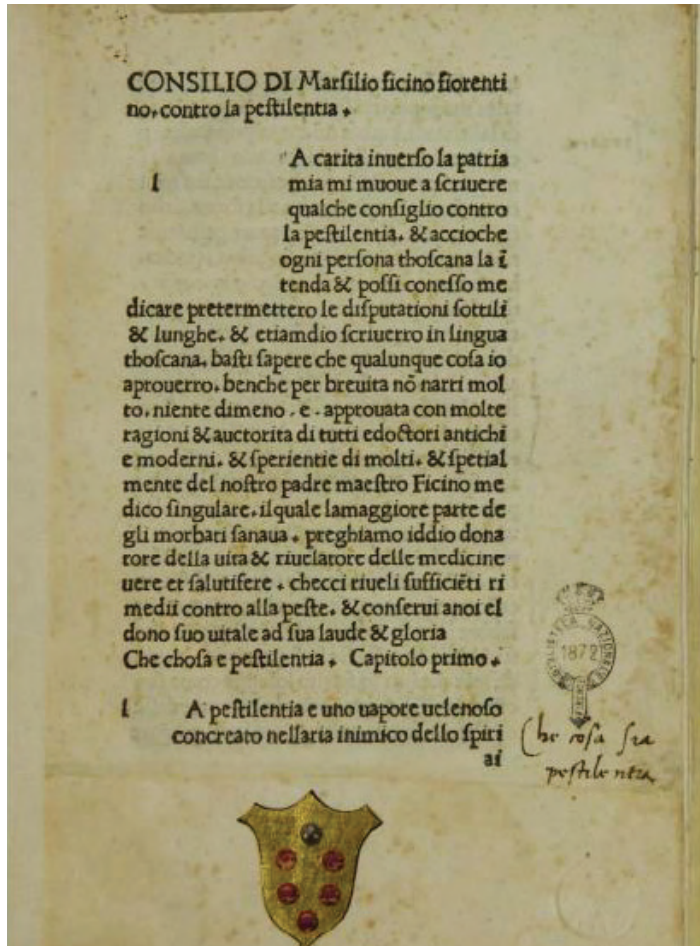 CONSILIO DI Marſilio ficino fiorenti
no. contro la peſtilentia.
A carita inuerſo la patria
l mia mi muoue a ſcriuere
qualche conſiglio contro
la peſtilentia. & accioche
ogni perſona thoſcana la ī
tenda & poſſi coneſſo me
dicare pretermettero le diſputationi ſottili
& lunghe. & etiamdio ſcriuerro in lingua
thoſcana. baſti ſapere che qualunque coſa io
aprouerro. benche per breuita nō narri mol
to. niente dimeno . e . approuata con molte
ragioni & auctorita di tutti edoctori antichi
e moderni. & ſperientie di molti. & ſpetial
mente del noſtro padre maeſtro Ficino me
dico ſingulare. ilquale lamaggiore parte de
gli morbati ſanaua. preghiamo iddio dona
tore della uita & riuelatore delle medicine
uere et ſalutifere. checci riueli ſufficiēti ri
medii contro alla peſte. & conſerui anoi el
dono ſuo uitale ad ſua laude & gloria
Che choſa e peſtilentia. Capitolo primo.
l A peſtilentia e uno uapore uelenoſo
concreato nellaria inimico dello ſpiri
ai
Che coſa ſia
peſtilentia
1872